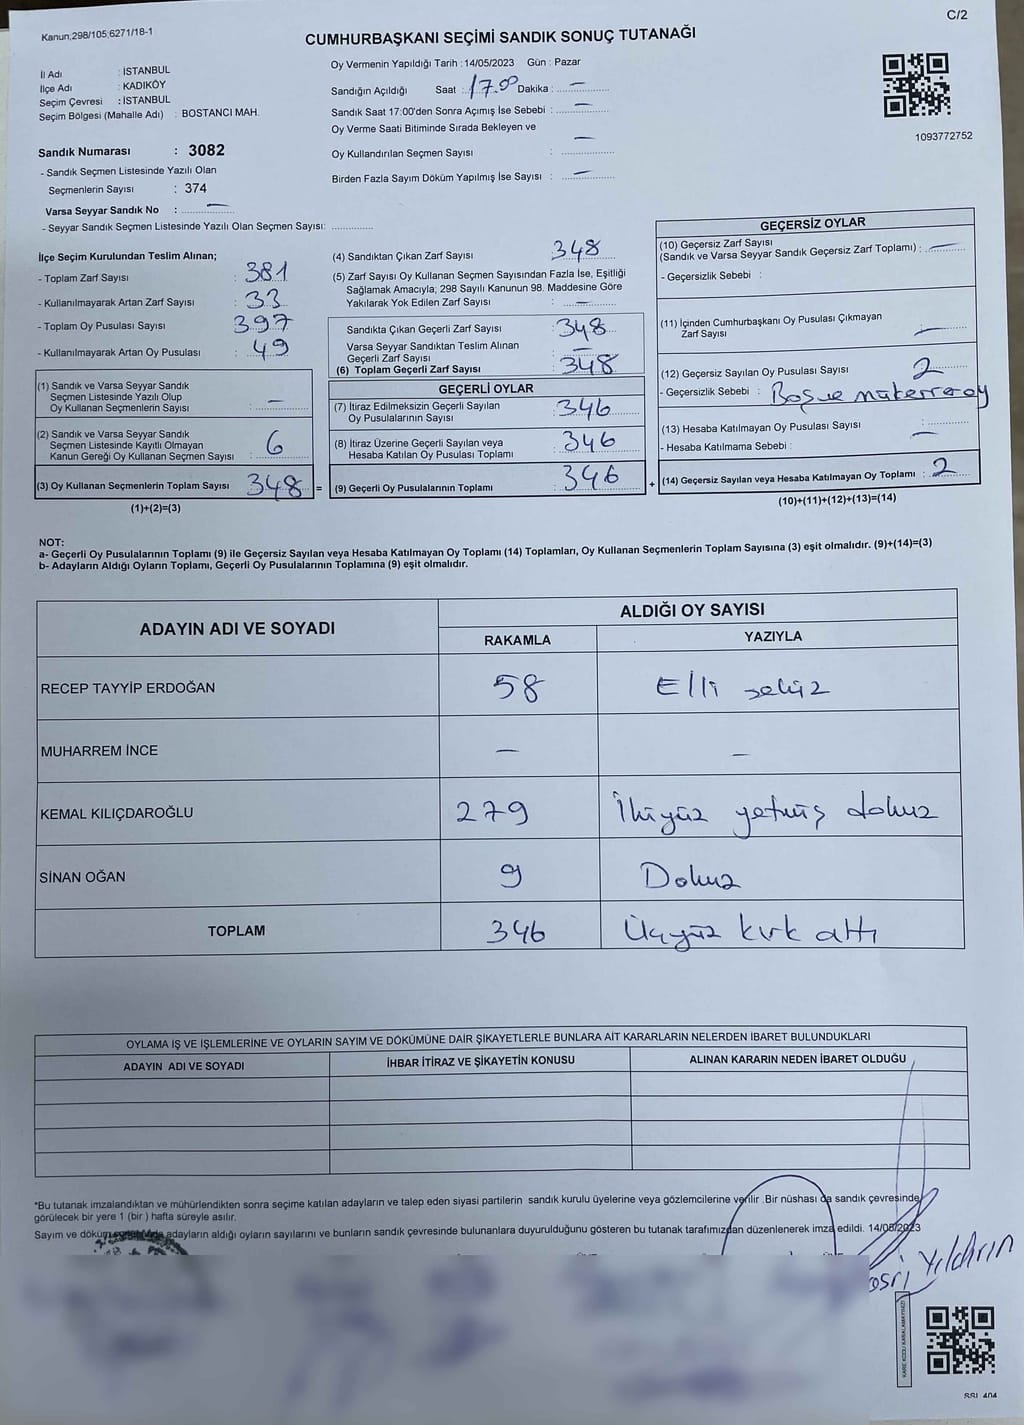 C/2
Kanun,298/105;6271/18-1
CUMHURBAŞKANI SEÇİMİ SANDIK SONUÇ TUTANAĞI
İl Adı : İSTANBUL
İlçe Adı : KADIKÖY
Seçim Çevresi : İSTANBUL
Seçim Bölgesi (Mahalle Adı) : BOSTANCI MAH.
Oy Vermenin Yapıldığı Tarih : 14/05/2023 Gün : Pazar
Sandığın Açıldığı Saat : 17.00 Dakika : —
Sandık Saat 17:00'den Sonra Açımış İse Sebebi : —
Oy Verme Saati Bitiminde Sırada Bekleyen ve
Oy Kullandırılan Seçmen Sayısı : —
Birden Fazla Sayım Döküm Yapılmış İse Sayısı : —
1093772752
Sandık Numarası : 3082
- Sandık Seçmen Listesinde Yazılı Olan
Seçmenlerin Sayısı : 374
Varsa Seyyar Sandık No : —
- Seyyar Sandık Seçmen Listesinde Yazılı Olan Seçmen Sayısı: ..............
İlçe Seçim Kurulundan Teslim Alınan;
- Toplam Zarf Sayısı : 381
- Kullanılmayarak Artan Zarf Sayısı : 33
- Toplam Oy Pusulası Sayısı : 397
- Kullanılmayarak Artan Oy Pusulası : 49
(1) Sandık ve Varsa Seyyar Sandık
Seçmen Listesinde Yazılı Olup
Oy Kullanan Seçmenlerin Sayısı : —
(2) Sandık ve Varsa Seyyar Sandık
Seçmen Listesinde Kayıtlı Olmayan
Kanun Gereği Oy Kullanan Seçmen Sayısı : 6
(3) Oy Kullanan Seçmenlerin Toplam Sayısı 348 =
(1)+(2)=(3)
(4) Sandıktan Çıkan Zarf Sayısı 348
(5) Zarf Sayısı Oy Kullanan Seçmen Sayısından Fazla İse, Eşitliği
Sağlamak Amacıyla; 298 Sayılı Kanunun 98. Maddesine Göre
Yakılarak Yok Edilen Zarf Sayısı : —
Sandıkta Çıkan Geçerli Zarf Sayısı : 348
Varsa Seyyar Sandıktan Teslim Alınan
Geçerli Zarf Sayısı : —
(6) Toplam Geçerli Zarf Sayısı : 348
GEÇERLİ OYLAR
(7) İtiraz Edilmeksizin Geçerli Sayılan
Oy Pusulasının Sayısı : 346
(8) İtiraz Üzerine Geçerli Sayılan veya
Hesaba Katılan Oy Pusulası Toplamı : 346
(9) Geçerli Oy Pusulalarının Toplamı : 346 +
GEÇERSİZ OYLAR
(10) Geçersiz Zarf Sayısı
(Sandık ve Varsa Seyyar Sandık Geçersiz Zarf Toplamı) : —
- Geçersizlik Sebebi :
(11) İçinden Cumhurbaşkanı Oy Pusulası Çıkmayan
Zarf Sayısı : —
(12) Geçersiz Sayılan Oy Pusulası Sayısı : 2
- Geçersizlik Sebebi : Boş ve mükerrer oy
(13) Hesaba Katılmayan Oy Pusulası Sayısı : —
- Hesaba Katılmama Sebebi :
(14) Geçersiz Sayılan veya Hesaba Katılmayan Oy Toplamı : 2
(10)+(11)+(12)+(13)=(14)
NOT:
a- Geçerli Oy Pusulalarının Toplamı (9) ile Geçersiz Sayılan veya Hesaba Katılmayan Oy Toplamı (14) Toplamları, Oy Kullanan Seçmenlerin Toplam Sayısına (3) eşit olmalıdır. (9)+(14)=(3)
b- Adayların Aldığı Oyların Toplamı, Geçerli Oy Pusulalarının Toplamına (9) eşit olmalıdır.
ADAYIN ADI VE SOYADI
ALDIĞI OY SAYISI
RAKAMLA YAZIYLA
RECEP TAYYİP ERDOĞAN 58 Elli sekiz
MUHARREM İNCE — —
KEMAL KILIÇDAROĞLU 279 İkiyüz yetmiş dokuz
SİNAN OĞAN 9 Dokuz
TOPLAM 346 Üçyüz kırk altı
OYLAMA İŞ VE İŞLEMLERİNE VE OYLARIN SAYIM VE DÖKÜMÜNE DAİR ŞİKAYETLERLE BUNLARA AİT KARARLARIN NELERDEN İBARET BULUNDUKLARI
ADAYIN ADI VE SOYADI İHBAR İTİRAZ VE ŞİKAYETİN KONUSU ALINAN KARARIN NEDEN İBARET OLDUĞU
*Bu tutanak imzalandıktan ve mühürlendikten sonra seçime katılan adayların ve talep eden siyasi partilerin sandık kurulu üyelerine veya gözlemcilerine verilir .Bir nüshası da sandık çevresinde
görülecek bir yere 1 (bir ) hafta süreyle asılır.
Sayım ve döküm adayların aldığı oyların sayılarını ve bunların sandık çevresinde bulunanlara duyurulduğunu gösteren bu tutanak tarafımızdan düzenlenerek imza edildi. 14/05/2023
Yıldırın
KARE KODU KARALAMAYINIZ!